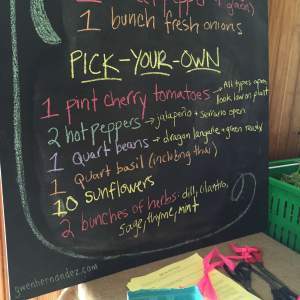 pepper
1 bunch fresh onions
PICK-YOUR-OWN
1 pint cherry tomatoes → All types open
look low on plant
2 hot peppers → jalapeño + serrano open
1 quart beans → dragon langerie + green ready
1 quart basil (including thai)
10 sunflowers
2 bunches of herbs: dill, cilantro,
sage, thyme, mint
gwenhernandez.com